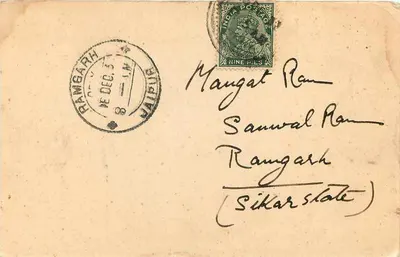 INDIA POSTAGE
NINE PIES
RAMGARH
DEC. 3
8
JAIPUR
Mangat Ram
Sanwal Ram
Ramgarh
(Sikar state)